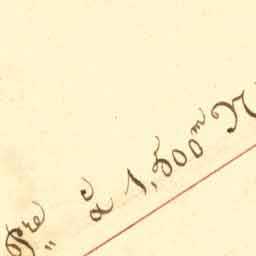 Pre à 1,500m N
"